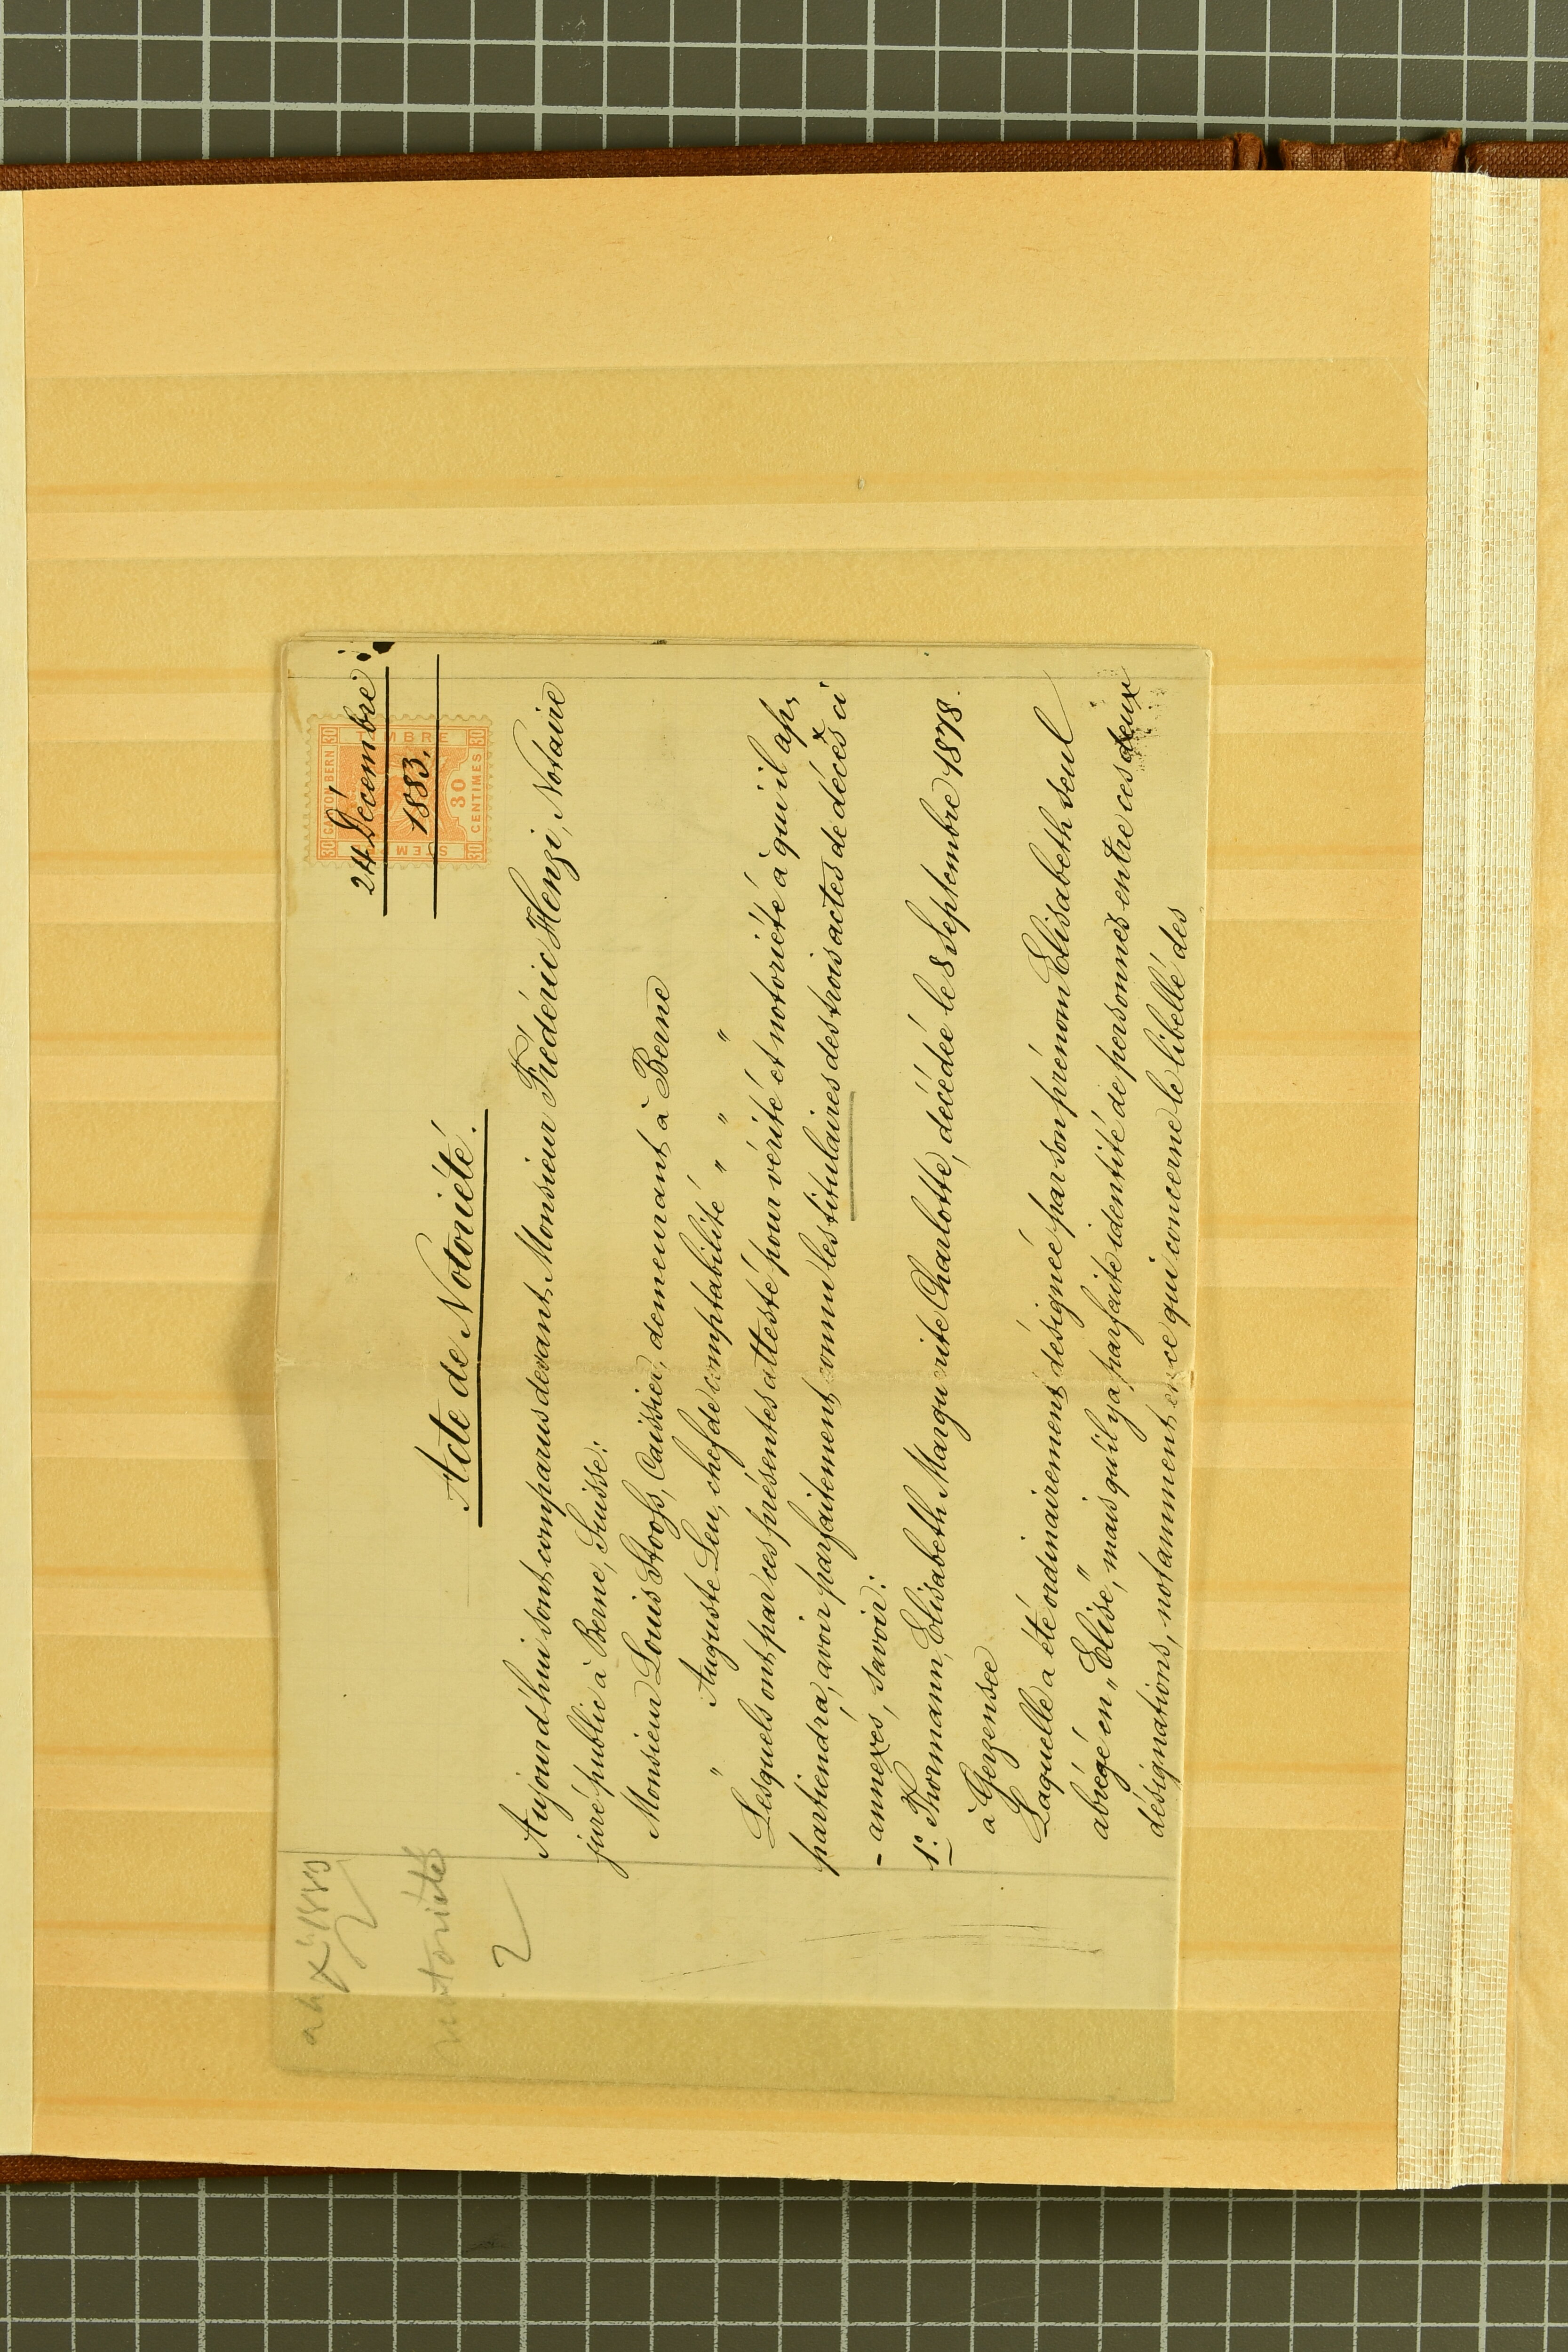 24 X.bre 1883
notoriété
2
CANTON BERN
TIMBRE
30 CENTIMES
24 Décembre
1883.
Acte de Notoriété.
Aujourd'hui sont comparus devant Monsieur Frédéric Henzi, Notaire
juré public à Berne, Suisse:
Monsieur Louis Stooss, Caissier, demeurant à Berne
" Auguste Leu, chef de comptabilité " " "
Lesquels ont par ces présentes attesté pour vérité et notoriété à qui il ap,
partiendra, avoir parfaitement connu les titulaires des trois actes de décès ci
- annexés, savoir:
1º. Thormann, Elisabeth Marguerite Charlotte, décédée le 8 Septembre 1878.
à Gerzensee
Laquelle a été ordinairement désignée par son prénom Elisabeth seul
abrégé en „Elise", mais qu'il y a parfaite identité de personnes entre ces deux
désignations, notamment en ce qui concerne le libellé des